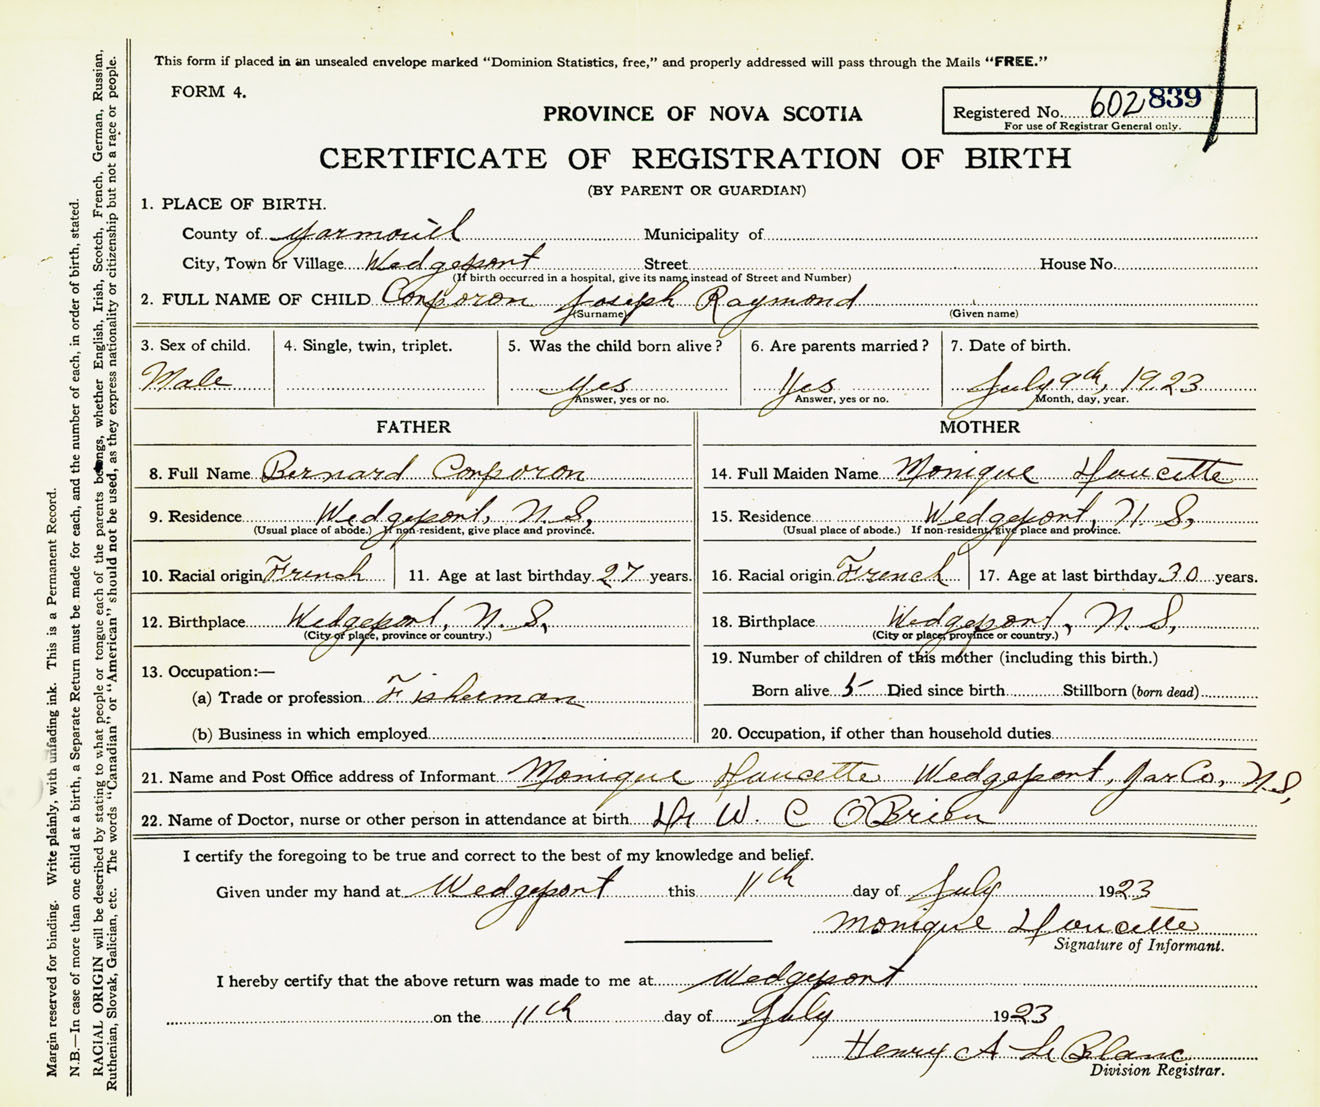 This form if placed in an unsealed envelope marked "Dominion Statistics, free," and properly addressed will pass through the Mails "FREE."
FORM 4.
PROVINCE OF NOVA SCOTIA
Registered No. 602839
For use of Registrar General only.
CERTIFICATE OF REGISTRATION OF BIRTH
(BY PARENT OR GUARDIAN)
1. PLACE OF BIRTH.
County of Yarmouth Municipality of
City, Town or Village Wedgeport Street House No.
(If birth occurred in a hospital, give its name instead of Street and Number)
2. FULL NAME OF CHILD Corporon Joseph Raymond
(Surname) (Given name)
3. Sex of child. 4. Single, twin, triplet. 5. Was the child born alive? 6. Are parents married? 7. Date of birth.
Male Yes Yes July 9th, 1923
Answer, yes or no. Answer, yes or no. Month, day, year.
FATHER MOTHER
8. Full Name Bernard Corporon 14. Full Maiden Name Monique Doucette
9. Residence Wedgeport, N.S, 15. Residence Wedgeport, N.S,
(Usual place of abode.) If non-resident, give place and province. (Usual place of abode.) If non-resident, give place and province.
10. Racial origin French 11. Age at last birthday 27 years. 16. Racial origin French 17. Age at last birthday 30 years.
12. Birthplace Wedgeport, N.S, 18. Birthplace Wedgeport, N.S,
(City or place, province or country.) (City or place, province or country.)
13. Occupation:— 19. Number of children of this mother (including this birth.)
(a) Trade or profession Fisherman Born alive 5 Died since birth Stillborn (born dead)
(b) Business in which employed 20. Occupation, if other than household duties
21. Name and Post Office address of Informant Monique Doucette Wedgeport, Yar Co., N.S,
22. Name of Doctor, nurse or other person in attendance at birth Dr W. C O'Brien
I certify the foregoing to be true and correct to the best of my knowledge and belief.
Given under my hand at Wedgeport this 11th day of July 1923
Monique Doucette
Signature of Informant.
I hereby certify that the above return was made to me at Wedgeport
on the 11th day of July 1923
Henry A LeBlanc
Division Registrar.
Margin reserved for binding. Write plainly, with unfading ink. This is a Permanent Record.
N.B.—In case of more than one child at a birth, a Separate Return must be made for each, and the number of each, in order of birth, stated.
RACIAL ORIGIN will be described by stating to what people or tongue each of the parents belongs, whether English, Irish, Scotch, French, German, Russian,
Ruthenian, Slovak, Galician, etc. The words "Canadian" or "American" should not be used, as they express nationality or citizenship but not a race or people.